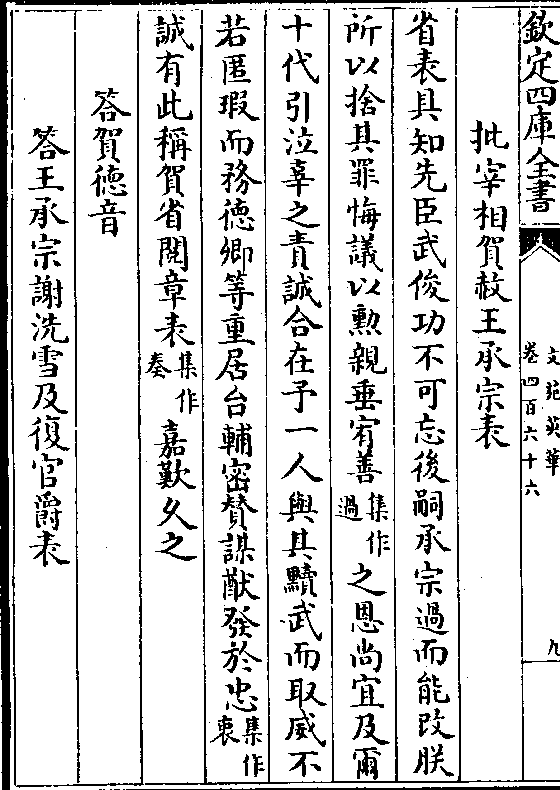 欽定四庫全書
文苑英華
卷四百六十六
九
批宰相賀赦王承宗表
省表具知先臣武俊功不可忘後嗣承宗過而能改朕
所以捨其罪悔議以勲親垂宥善集作過之恩尚宜及爾
十代引泣辜之責誠合在予一人與其黷武而取威不
若匿瑕而務德卿等重居台輔密賛謀猷發於忠集作衷
誠有此稱賀省閲章表集作奏嘉歎久之
答賀德音
答王承宗謝洗雪及復官爵表